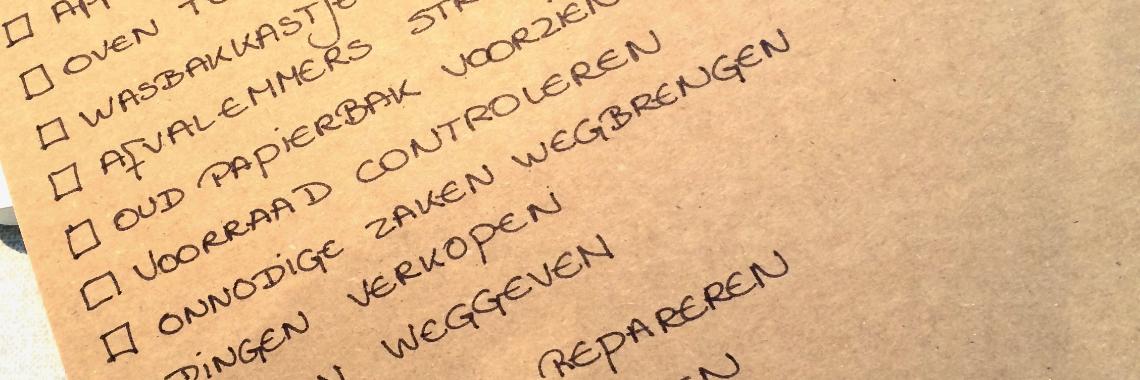 OVEN
WASBAKKASTJE
AFVALEMMERS
OUD PAPIERBAK VOORZIEN
VOORRAAD CONTROLEREN
ONNODIGE ZAKEN WEGBRENGEN
DINGEN VERKOPEN
WEGGEVEN
REPAREREN